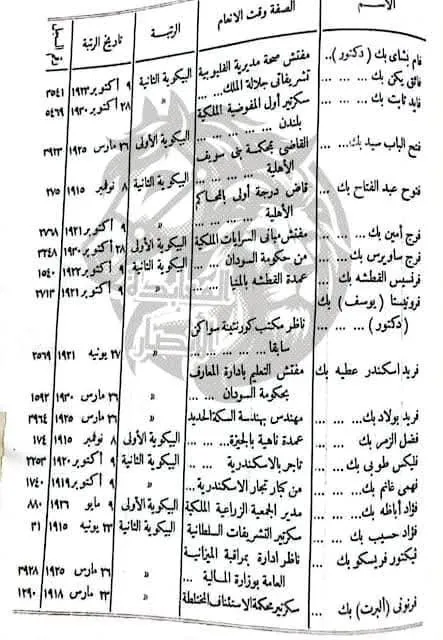 الاسم الصفة وقت الانعام الرتبة تاريخ الرتبة رقم السجل
فام بشاى بك ( دكتور) .. مفتش صحة مديرية القليوبية البيكوية الثانية ٩ أكتوبر ١٩٢٣ ٣٥٤١
فائق يكن بك ... ... تشريفاتى جلالة الملك ... « ٢٨ أكتوبر ١٩٣٠ ٥٤٦٩
فايد ثابت بك ... ... سكرتير أول المفوضية الملكية
بلندن ... ... ... ... البيكوية الأولى ٢٦ مارس ١٩٢٥ ٣٩٢٣
فتح الباب سيد بك ... القاضى بمحكمة بنى سويف
الأهلية ... ... ... البيكوية الثانية ٨ نوفمبر ١٩١٥ ٢٧٥
فتوح عبد الفتاح بك ... قاض درجة أولى بالمحاكم
الأهلية ... ... ... « ٩ أكتوبر ١٩٢١ ٢٧٦٨
فرج أمين بك ... ... مفتش مبانى السرايات الملكية البيكوية الأولى ٢٨ أكتوبر ١٩٣٠
فرج ساويرس بك ... من حكومة السودان ... البيكوية الثانية ٩ أكتوبر ١٩٢٢
فرنسيس القطشه بك ... عمدة القطشه بالمنيا ... « ٩ أكتوبر ١٩٢١ ٢٧١٣
( يوسف ) بك
( دكتور ) ... ... ناظر مكتب كورنتينة سواكن
سابقا ... ... ... « ٢٧ يونيه ١٩٢١ ٢٥٦٩
فريد اسكندر عطيه بك مفتش التعليم بادارة المعارف
بحكومة السودان ... « ٢٦ مارس ١٩٣٠
فريد بولاد بك ... ... مهندس بهندسة السكة الحديد « ٢٦ مارس ١٩٢٥ ٣٩٦٤
فضل الزمر بك ... ... عمدة ناهية بالجيزة ... البيكوية الأولى ٨ نوفمبر ١٩١٥ ١٧٤
فليكس طوبى بك ... تاجر بالاسكندرية ... البيكوية الثانية ٩ أكتوبر ١٩٢٠ ٢٢٥٣
فهمى غانم بك ... ... من كبار تجار الاسكندرية ... « ٩ أكتوبر ١٩١٩ ١٧٤٠
فؤاد أباظه بك ... ... مدير الجمعية الزراعية الملكية البيكوية الأولى ٩ مايو ١٩٢٦ ٨٨٠
فؤاد حسيب بك ... سكرتير التشريفات السلطانية البيكوية الثانية ٢٣ يونيه ١٩١٥ ٣١
فيكتور فرنسكو بك ... ناظر ادارة بمراقبة الميزانية
العامة بوزارة المالية ... « ٢٦ مارس ١٩٢٥ ٣٩٢٨
فرنونى ( ألبرت ) بك ... سكرتير محكمة الاستئناف المختلطة « ٢٣ مارس ١٩١٨ ١٢٩٠